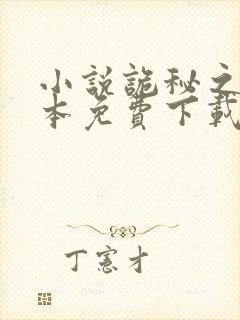 小说詭秘之
本免費下載
丁憲才